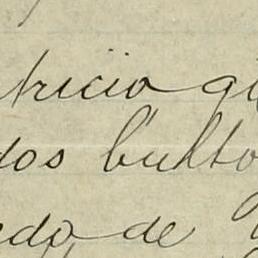 tricio qu
dos bulto
edo de